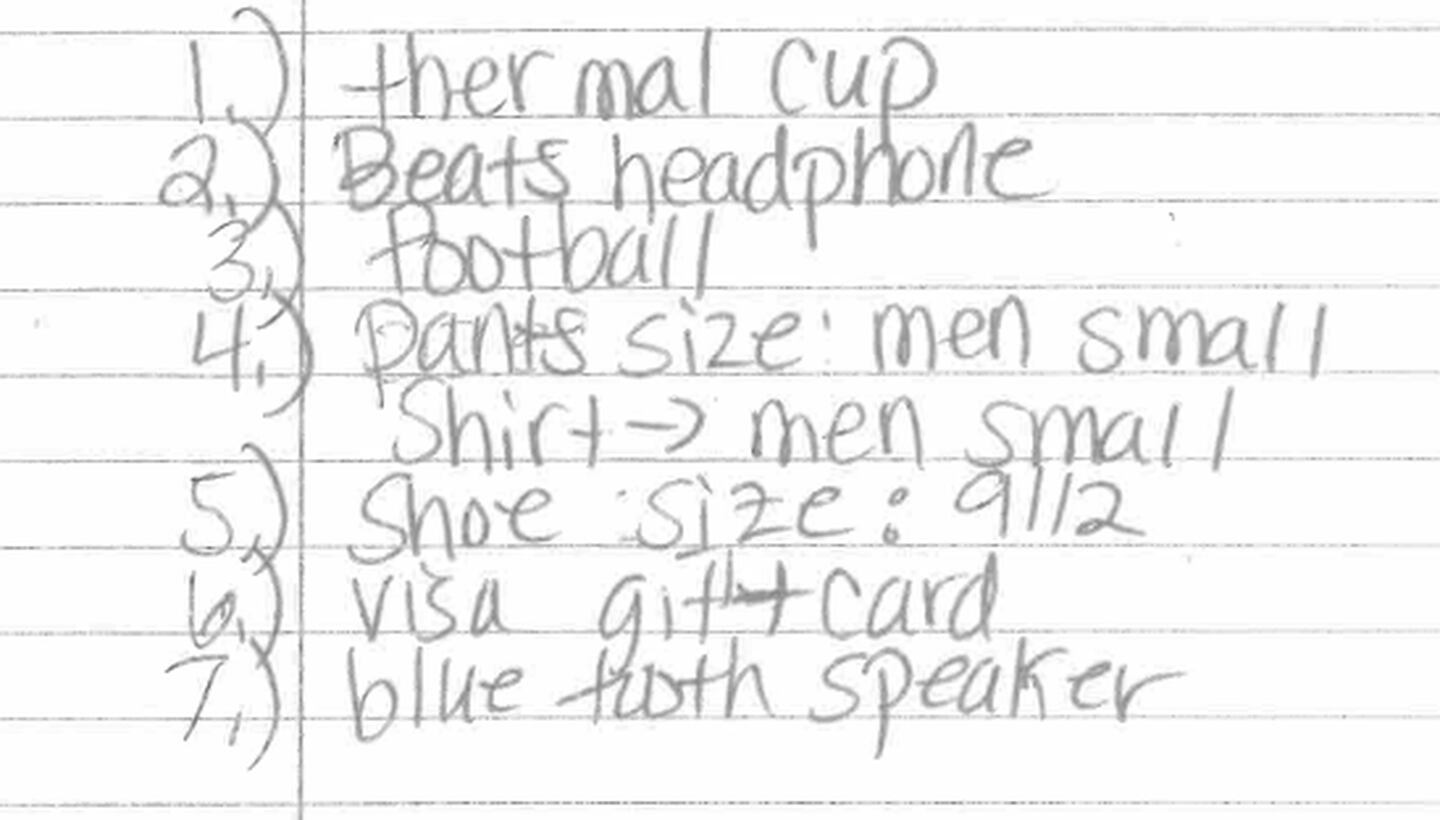 1.) thermal cup
2.) Beats headphone
3.) football
4.) pants size: men small
Shirt → men small
5.) Shoe size: 9 1/2
6.) visa gift card
7.) blue tooth speaker